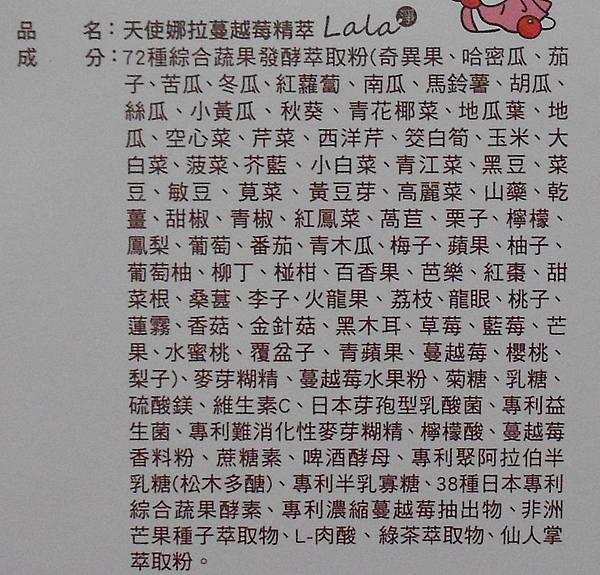 品 名：天使娜拉蔓越莓精萃 Lala
成 分：72種綜合蔬果發酵萃取粉(奇異果、哈密瓜、茄
子、苦瓜、冬瓜、紅蘿蔔、南瓜、馬鈴薯、胡瓜、
絲瓜、小黃瓜、秋葵、青花椰菜、地瓜葉、地
瓜、空心菜、芹菜、西洋芹、筊白筍、玉米、大
白菜、菠菜、芥藍、小白菜、青江菜、黑豆、菜
豆、敏豆、莧菜、黃豆芽、高麗菜、山藥、乾
薑、甜椒、青椒、紅鳳菜、萵苣、栗子、檸檬、
鳳梨、葡萄、番茄、青木瓜、梅子、蘋果、柚子、
葡萄柚、柳丁、椪柑、百香果、芭樂、紅棗、甜
菜根、桑葚、李子、火龍果、荔枝、龍眼、桃子、
蓮霧、香菇、金針菇、黑木耳、草莓、藍莓、芒
果、水蜜桃、覆盆子、青蘋果、蔓越莓、櫻桃、
梨子)、麥芽糊精、蔓越莓水果粉、菊糖、乳糖、
硫酸鎂、維生素C、日本芽孢型乳酸菌、專利益
生菌、專利難消化性麥芽糊精、檸檬酸、蔓越莓
香料粉、蔗糖素、啤酒酵母、專利聚阿拉伯半
乳糖(松木多醣)、專利半乳寡糖、38種日本專利
綜合蔬果酵素、專利濃縮蔓越莓抽出物、非洲
芒果種子萃取物、L-肉酸、綠茶萃取物、仙人掌
萃取粉。